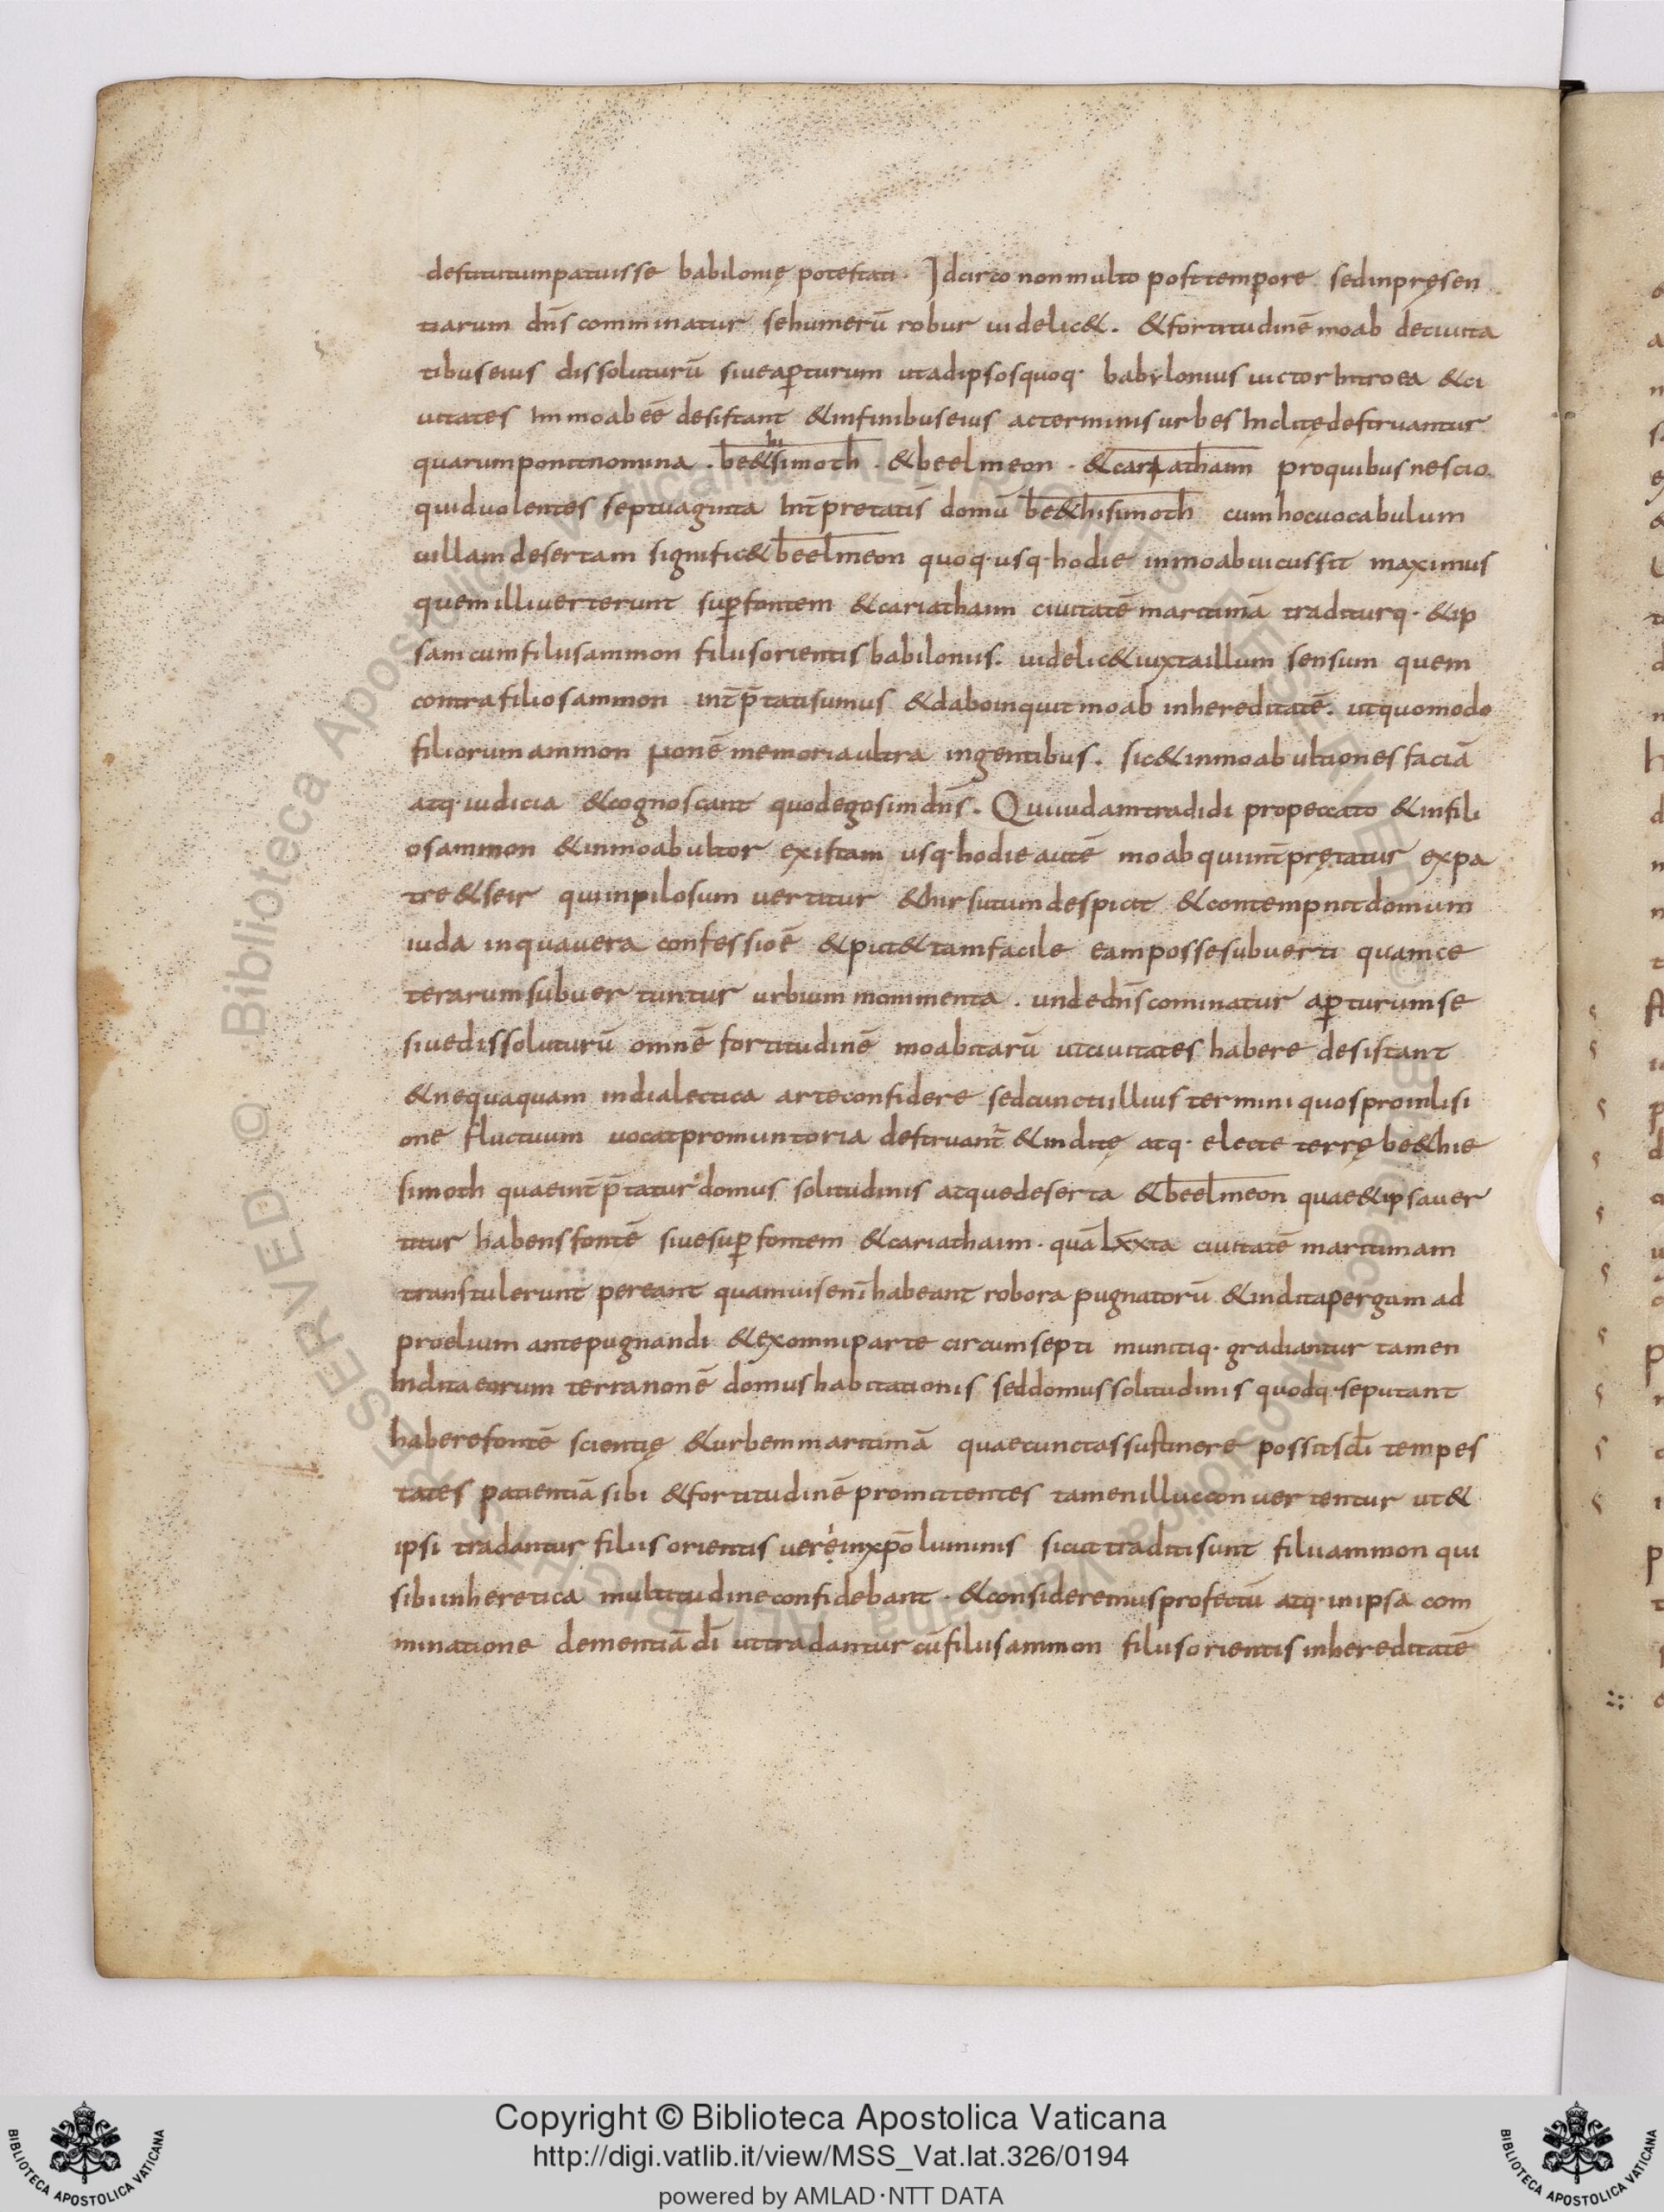 destitutum patuisse babilonię potestati. Idcirco non multo post tempore sed in pręsen
tiarum dn̄s comminatur se humerū robur uidelic&. & fortitudinē moab de ciuita
tibus eius dissoluturū siue ap̲turum ut ad ipsos quoq· babylonius uictor Introea & ci
uitates In moab eē desistant & in finibus eius ac terminis urbes Inclitę destruantur
quarum ponit nomina . be&hisimoth . & beelmeon . & cariathaim pro quibus nescio
quid uolentes septuaginta Int̄pretatis domū be&hisimoth cum hoc uocabulum
uillam desertam signific& beelmeon quoq· usq· hodie in moab uicus sit maximus
quem illi uerterunt sup̲ fontem & cariathaim ciuitatē maritimā traditurq· & ip
sam cum filiis ammon filiis orientis babilonus. uidelic& iuxta illum sensum quem
contra filios ammon int̄p̄tati sumus & dabo inquit moab in hereditatē. ut quomodo
filiorum ammon n̄ onē memoria ultra in gentibus. sic & in moab ultiones faciā
atq· iudicia & cognoscant quod ego sim dn̄s. Qui iudam tradidi pro peccato & in fili
os ammon & in moab ultor existam usq· hodie autē moab qui int̄prętatur ex pa
tre & seir qui in pilosum uertitur & hirsutum despicit & contempnit domum
iuda in qua uera confessio ē & put& tam facile eam posse subuerti quam ce
terarum subuertuntur urbium monimenta . unde dn̄s cominatur ap̲turum se
siue dissoluturū omnē fortitudinē moabitarū ut ciuitates habere desistant
& nequaquam in dialectica arte confidere sed cuncti illius termini quos pro inlisi
one fluctuum uocat promuntoria destruant̄ & inclitę atq· electe terrę be&hie
simoth quae int̄p̄tatur domus solitudinis atque deserta & beelmeon quae & ipsa uer
titur habens fontē siue sup̲ fontem & cariathaim . quā lxxta ciuitatē maritimam
transtulerunt pereant quamuis enī habeant robora pugnatorū & inclita pergam ad
proelium ante pugnandi & ex omni parte circumsepti munitiq· gradiantur tamen
Inclita eorum terra non ē domus habitationis sed domus solitudinis quodq· se putant
habere fontē scientię & urbem maritimā quae cunctas sustinere possit scl̄i tempes
tates patientiā sibi & fortitudinē promittentes tamen illuc conuertentur ut &
ipsi tradantur filiis orientis uerę in xp̄o luminis sicut traditi sunt filii ammon qui
sibi in heretica multitudine confidebant . & consideremus profectū atq· in ipsa com
minatione clementiā dī ut tradantur cū filiis ammon filiis orientis in hereditatē
Copyright © Biblioteca Apostolica Vaticana
http://digi.vatlib.it/view/MSS_Vat.lat.326/0194
powered by AMLAD·NTT DATA
BIBLIOTECA APOSTOLICA VATICANA
BIBLIOTECA APOSTOLICA VATICANA